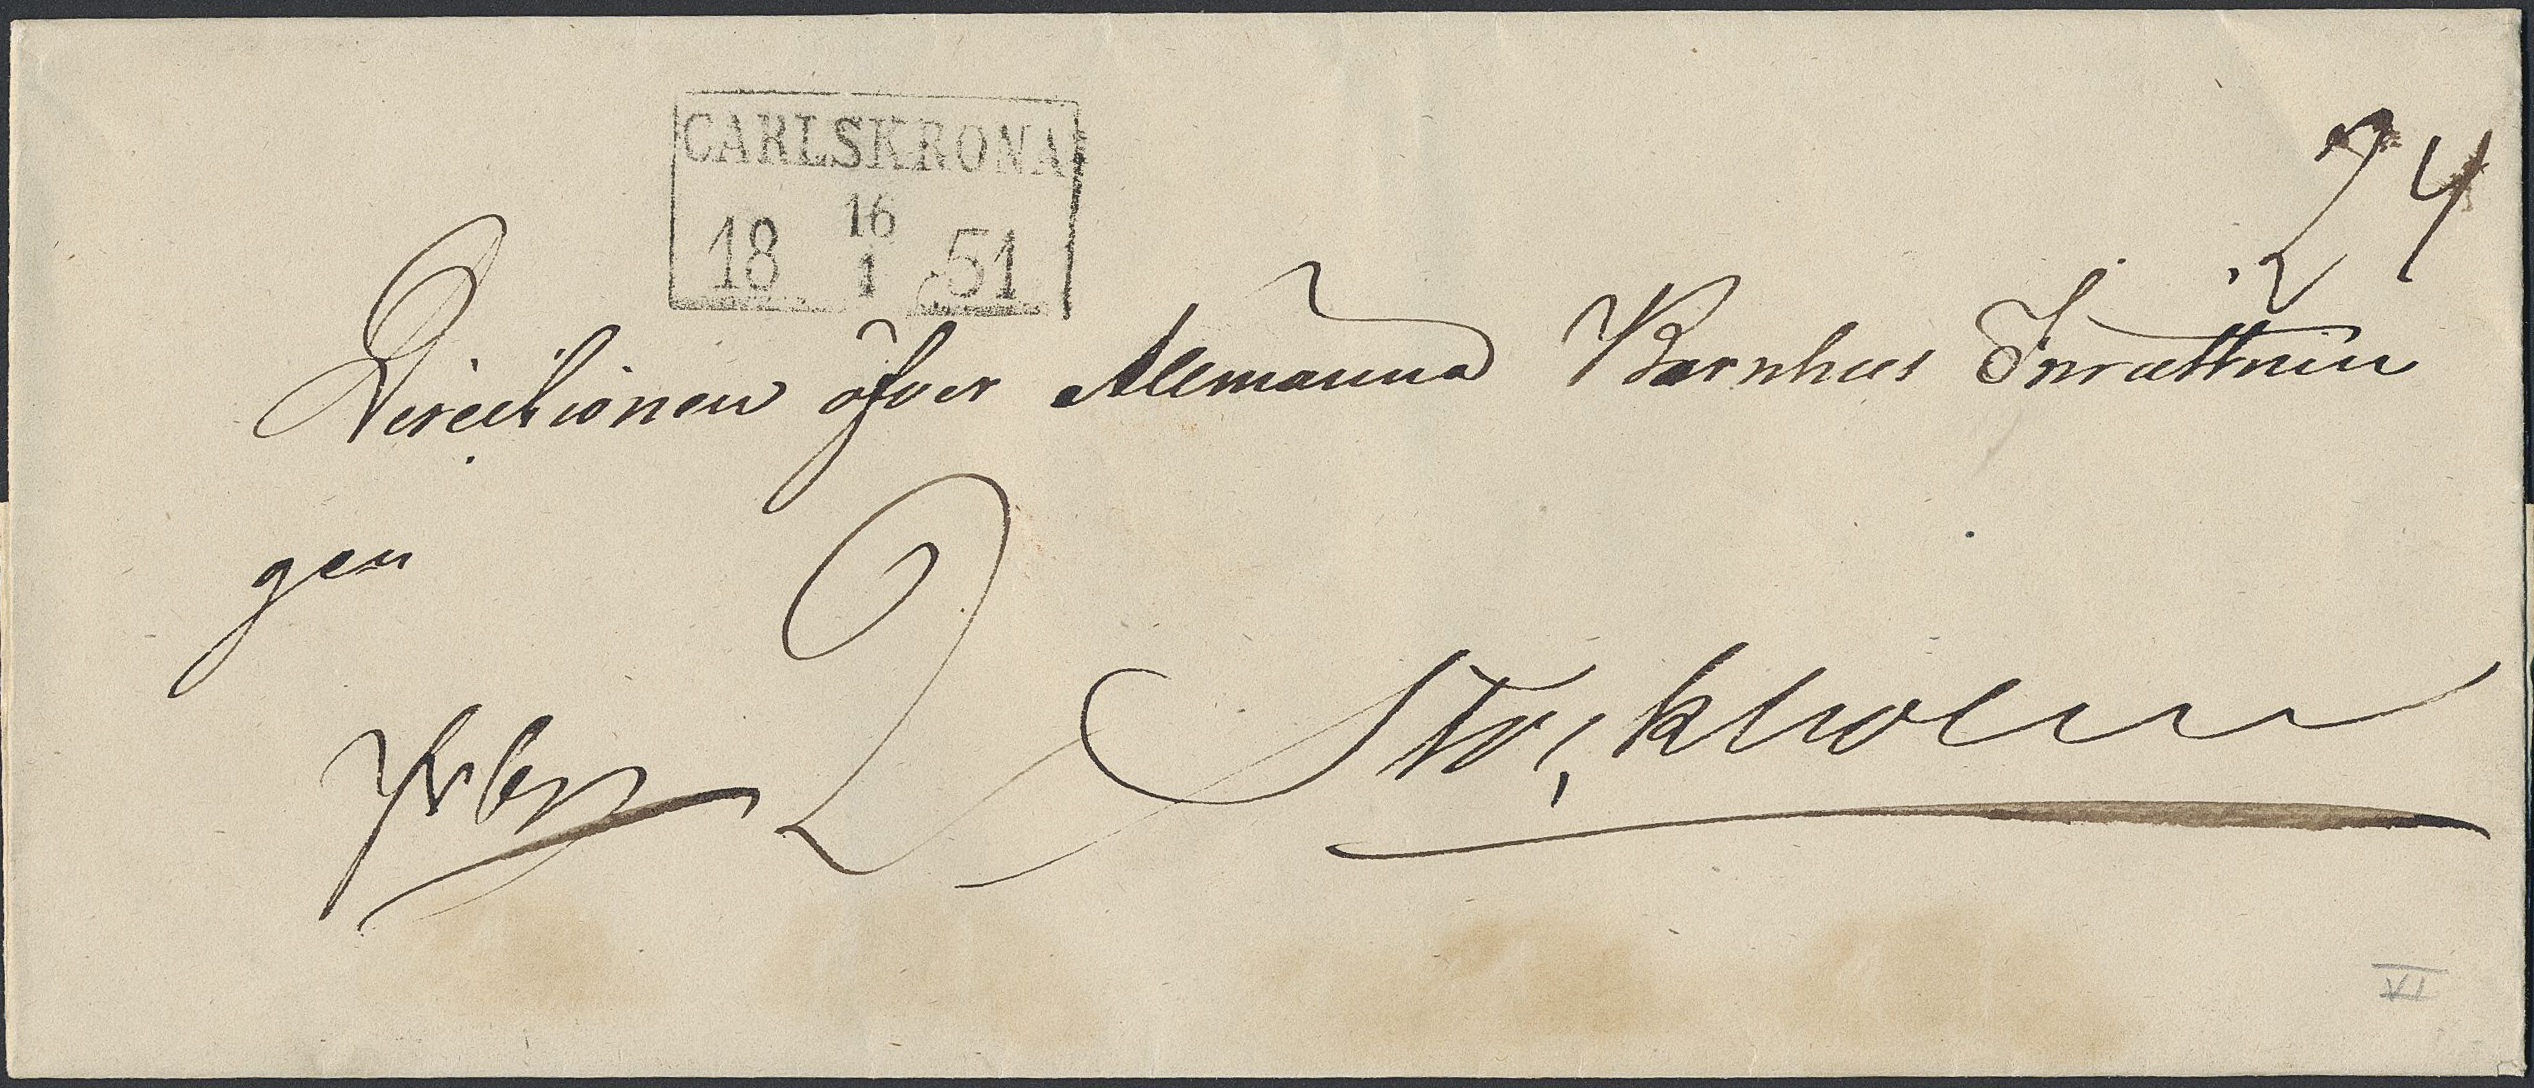 CARLSKRONA
18 16/1 51
24
Directionen öfver Allmänna Barnhus Inrättnin
gen
2
Stockholm
VI